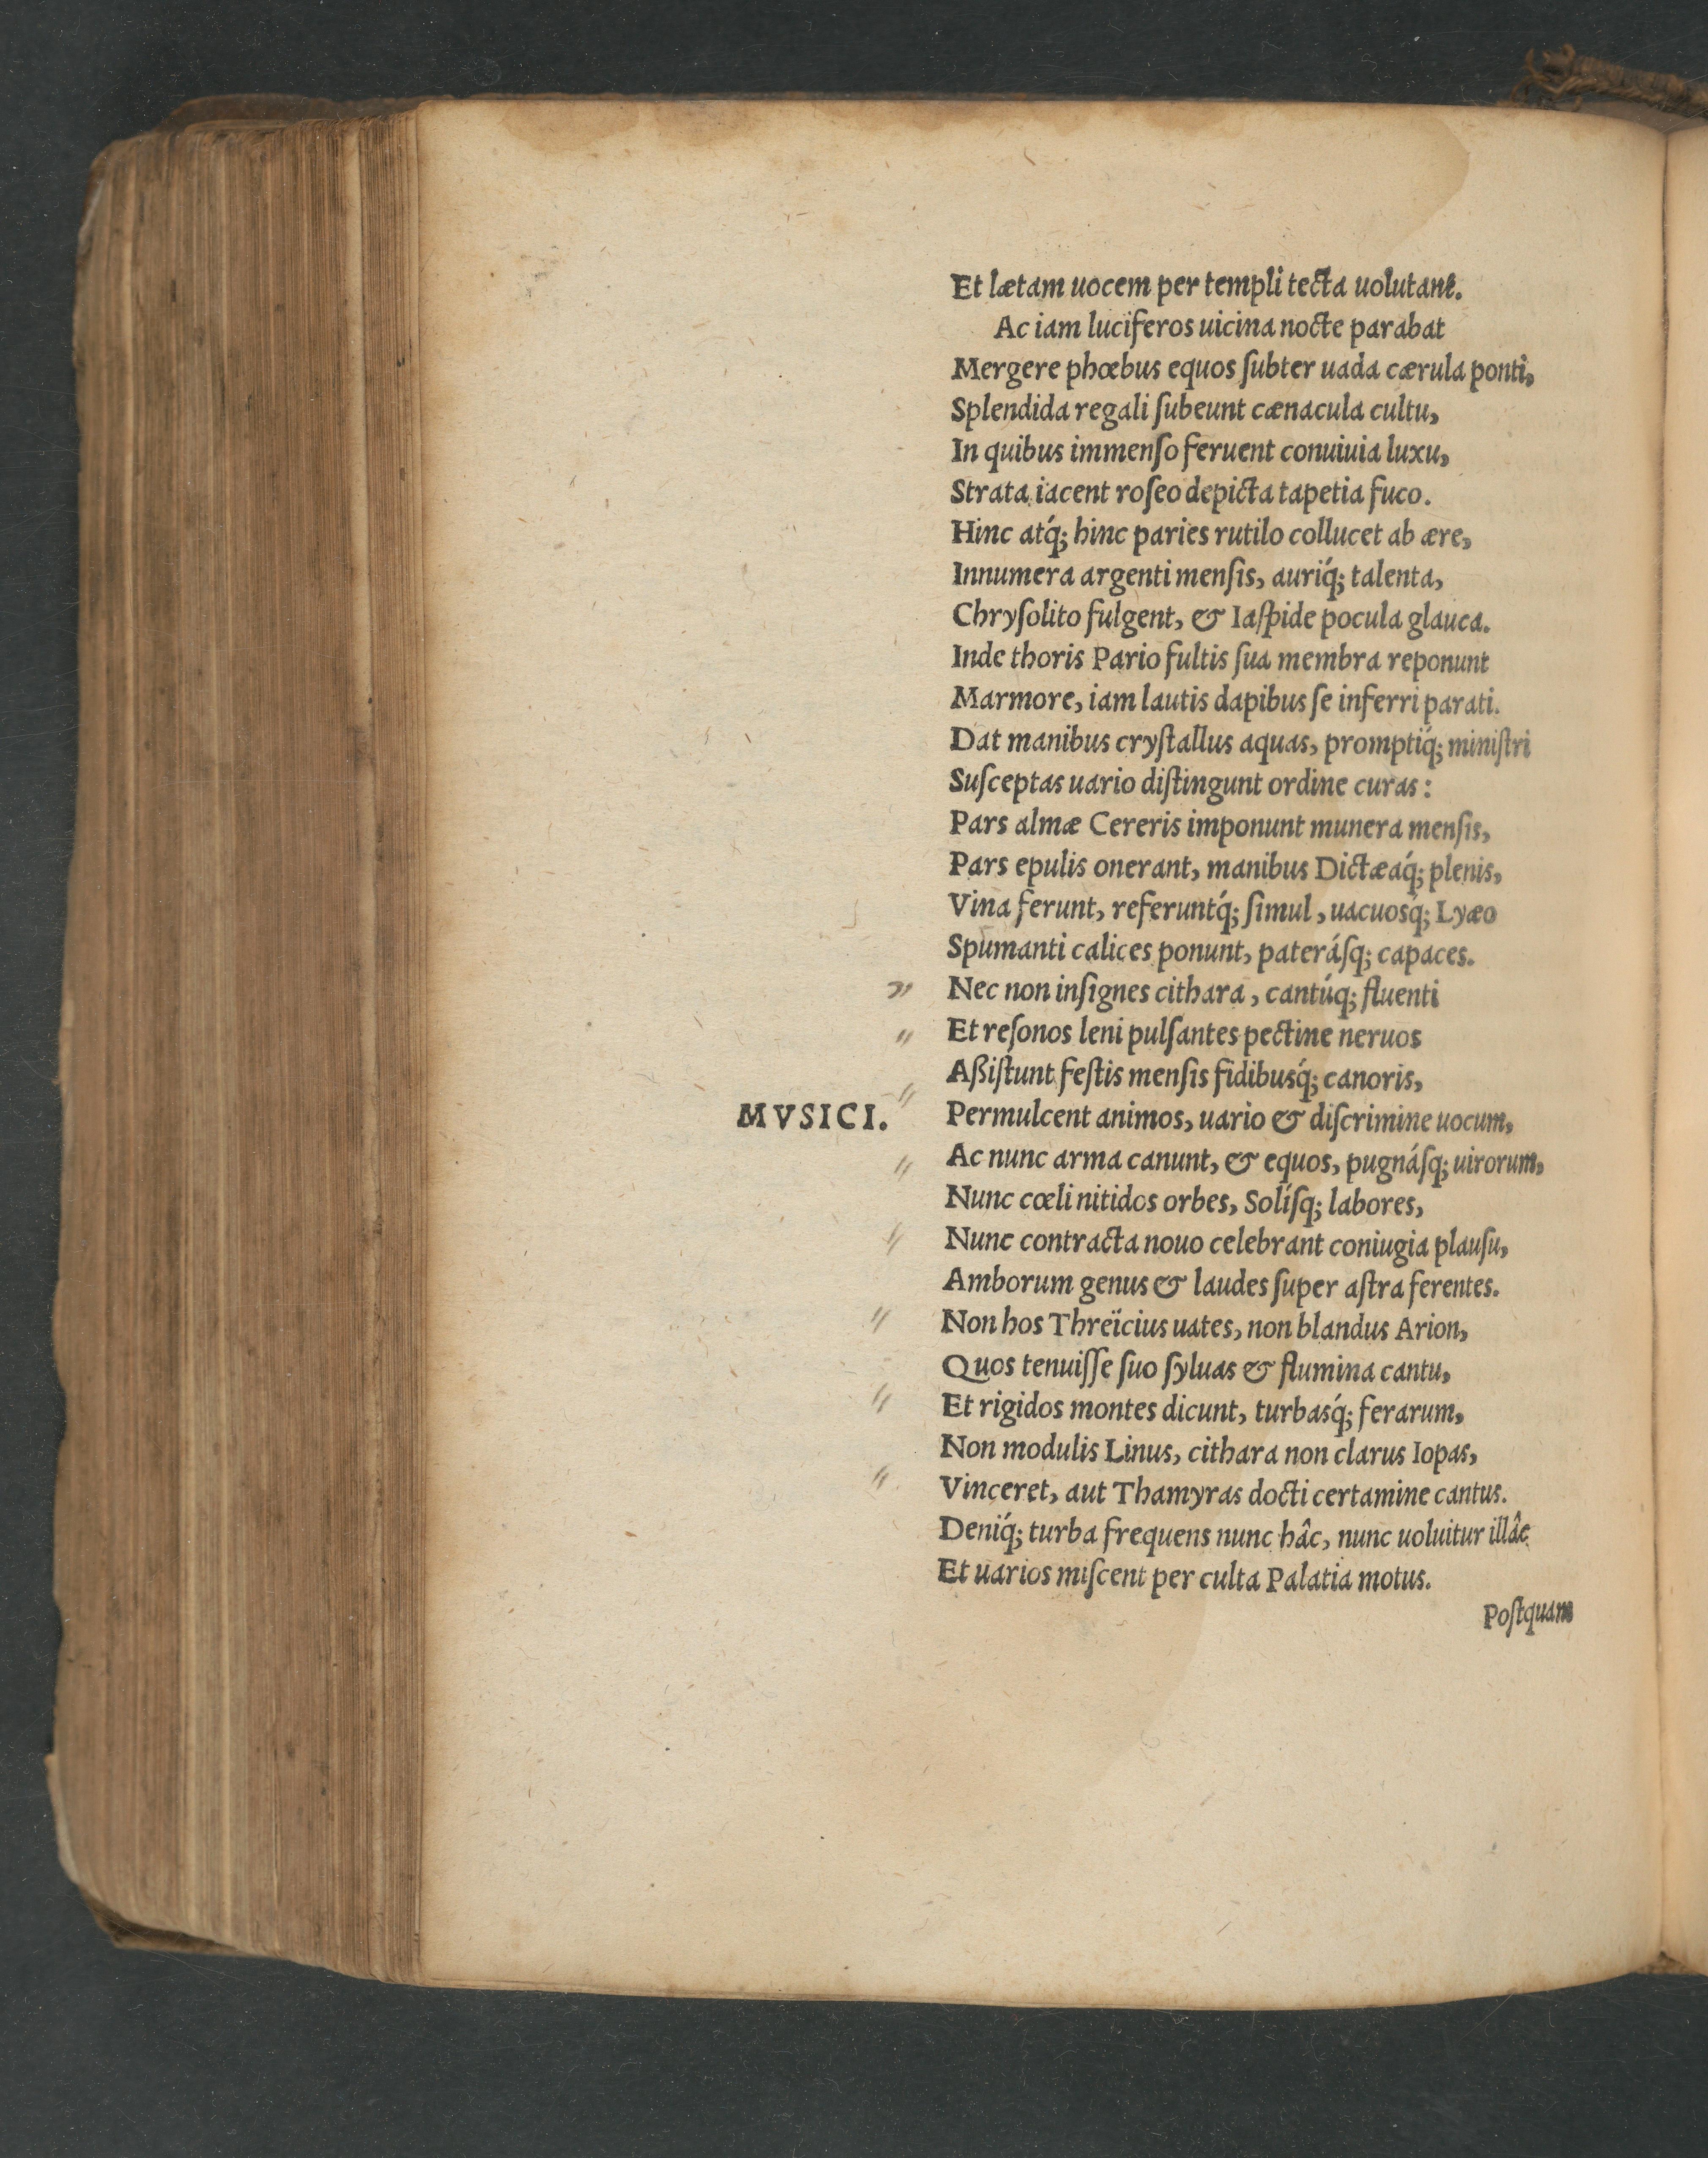 Et lætam uocem per templi tecta uolutant.
Ac iam luciferos uicina nocte parabat
Mergere phœbus equos ſubter uada cærula ponti,
Splendida regali ſubeunt cænacula cultu,
In quibus immenſo feruent conuiuia luxu,
Strata iacent roſeo depicta tapetia fuco.
Hinc atq́; hinc paries rutilo collucet ab ære,
Innumera argenti menſis, auriq́; talenta,
Chryſolito fulgent, & Iaſpide pocula glauca.
Inde thoris Pario fultis ſua membra reponunt
Marmore, iam lautis dapibus ſe inferri parati.
Dat manibus cryſtallus aquas, promptiq́; miniſtri
Suſceptas uario diſtingunt ordine curas:
Pars almæ Cereris imponunt munera menſis,
Pars epulis onerant, manibus Dictæaq́; plenis,
Vina ferunt, referuntq́; ſimul, uacuosq́; Lyæo
Spumanti calices ponunt, pateráſq; capaces.
Nec non inſignes cithara, cantúq; fluenti
Et reſonos leni pulſantes pectine neruos
Aßiſtunt feſtis menſis fidibusq́; canoris,
MVSICI. Permulcent animos, uario & diſcrimine uocum,
Ac nunc arma canunt, & equos, pugnáſq; uirorum,
Nunc cœli nitidos orbes, Solíſq; labores,
Nunc contracta nouo celebrant coniugia plauſu,
Amborum genus & laudes ſuper aſtra ferentes.
Non hos Threïcius uates, non blandus Arion,
Quos tenuiſſe ſuo ſyluas & flumina cantu,
Et rigidos montes dicunt, turbasq́; ferarum,
Non modulis Linus, cithara non clarus Iopas,
Vinceret, aut Thamyras docti certamine cantus.
Deniq́; turba frequens nunc hâc, nunc uoluitur illâc
Et uarios miſcent per culta Palatia motus.
Poſtquam